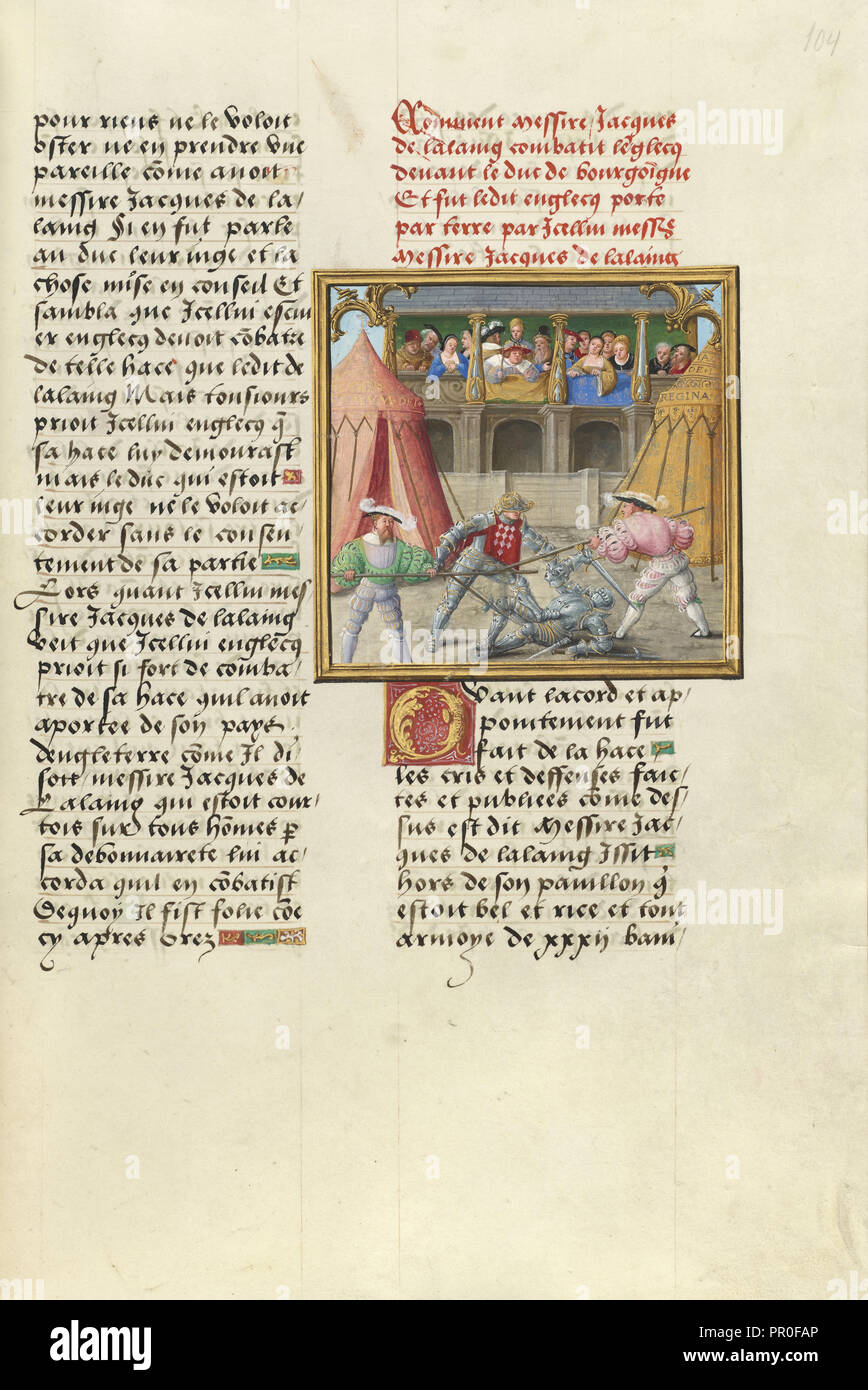 104
pour riens ne le voloit
oster ne en prendre une
pareille cōme avoit
messire Jacques de la/
laing Si en fut parle
au duc leur iuge et la
chose mise en conseil Et
sambla que Jcellui escui
er englecq devoit cōbatre
de telle hace que ledit de
lalaing Mais tousiours
prioit Jcellui englecq q̄
sa hace luy demourast
mais le duc qui estoit
leur iuge ne le voloit ac/
corder sans le consen/
tement de sa partie
Lors quant Jcellui mes/
sire Jacques de lalaing
veit que Jcellui englecq
prioit si fort de comba/
tre de sa hace quil avoit
aportee de son pays
dengleterre cōme Il di/
soit messire Jacques de
Lalaing qui estoit cour/
tois sur tous hōmes p
sa debonnairete lui ac/
corda quil en cōbatist
Dequoy Il fist folie cōe
cy apres Orez
Comment messire Jacques
de lalaing combatit lenglecq
devant le duc de bourgoingne
Et fut ledit englecq porte
par terre par Jcellui messr̄e
Messire Jacques de lalaing
REGINA
Quant lacord et ap/
pointement fut
fait de la hace
les cris et deffenses faic/
tes et publiees cōme des/
sus est dit Messire Jac/
ques de lalaing Jssit
hors de son pavillon q̄
estoit bel et rice et tout
armoye de xxxij bani/
alamy
a
alamy
Image ID: PR0FAP
www.alamy.com